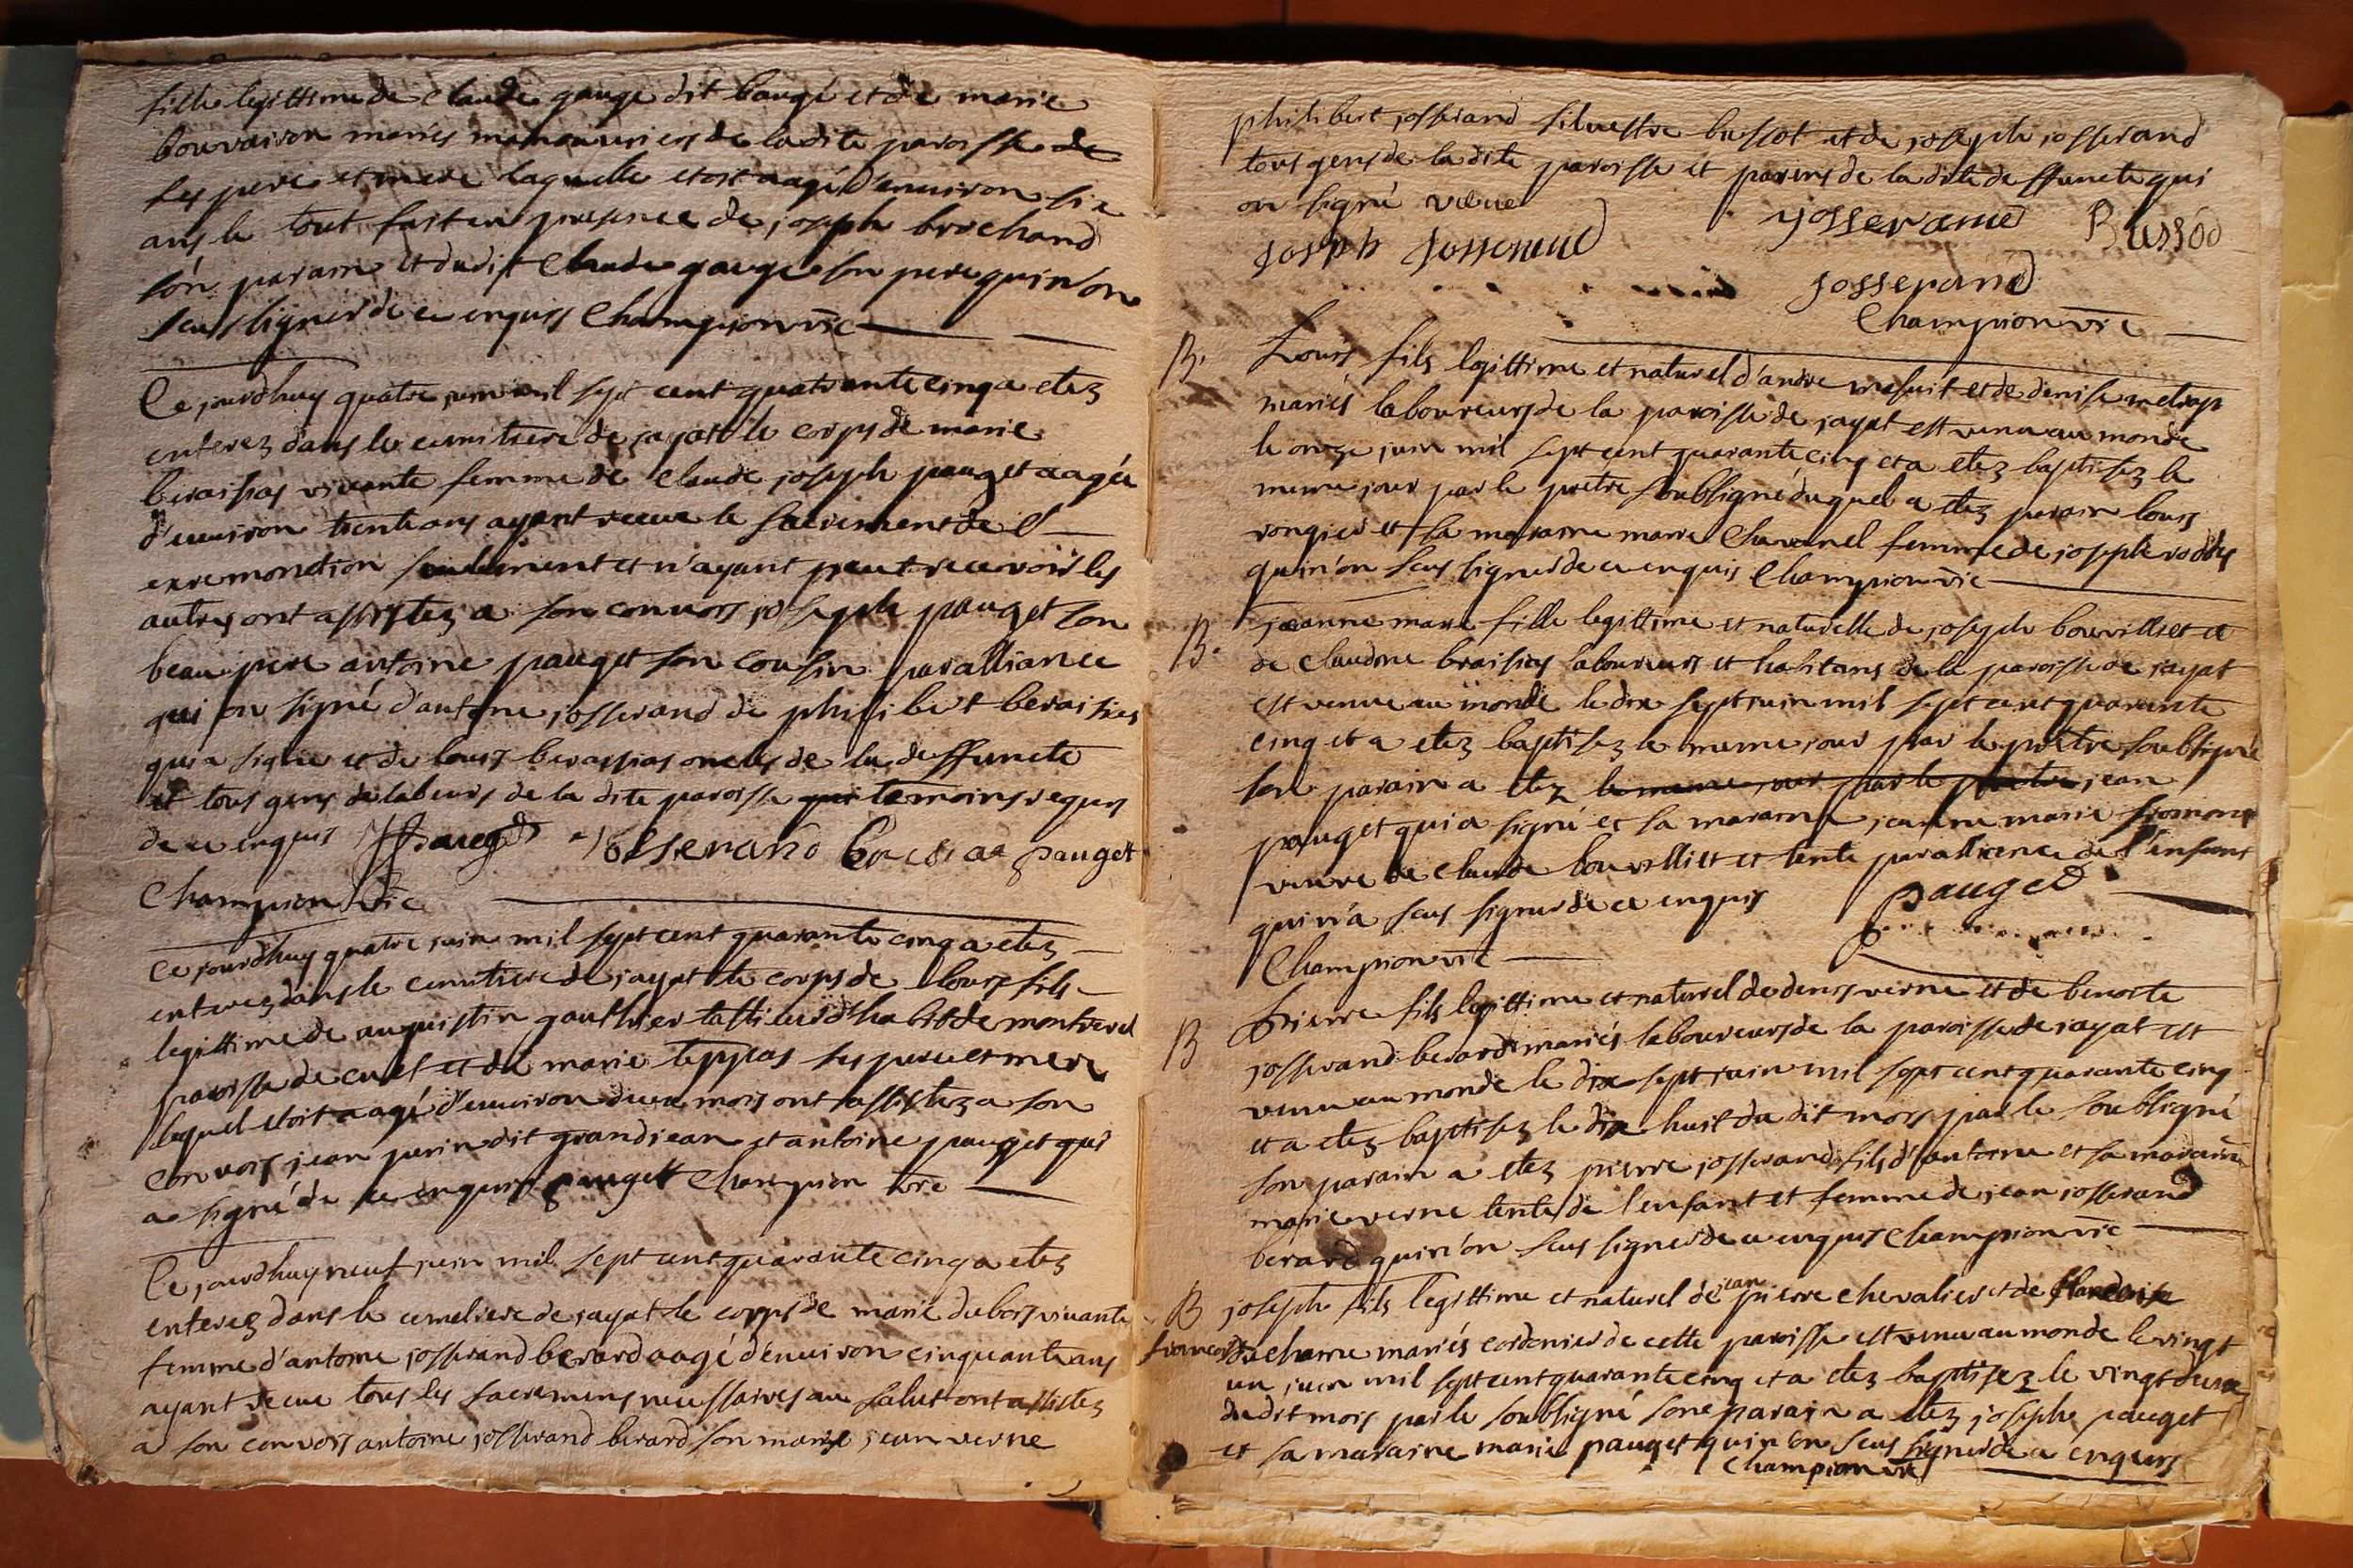 fille legittime de Claude gauge dit baugé et de marie
bouvairon mariés manouvriers de la dite paroisse de
ses pere et mere laquelle etoit aagé d'environ six
ans le tout fait en presence de joseph brochand
son parain et dudit Claude gauge son pere qui n'on
seus signer de ce enquis Champion vic
Ce jourdhuy quatre juin mil sept cent quatrante cinq a etez
enterez dans le cemitiere de jayat le corps de marie
beraisias vivante femme de Claude joseph pauget aagéé
d'environ trente ans ayant receue le sacrement de l'
exremonction seulement et n'ayant peut recevoir les
autres ont assistez a son convois joseph pauget son
beau pere antoine pauget son cousin par alliance
qui on signé d'antoine josserand de philibert beraisias
qui a signé et de louis berassias oncles de la deffuncte
et tous gens de labeurs de la dite paroisse qui temoins requis
de ce enquis Pauget Josserand pauget
Champion vic
Ce jourdhuy quatre juin mil sept cent quarante cinq a etez
enterez dans le cemitiere de jayat le corps de louis fils
legittime de auguistin gauthier tallieur d'habit de montrevel
paroisse de cuet et de marie teppas ses pere et mere
lequel etoit aagé d'environ deux mois ont assistez a son
convois jean purin dit grandjean et antoine pauget qui
a signé de ce enquis pauget Champion vic
Ce jourdhuy neuf juin mil sept cent quarante cinq a etez
enterez dans le cemetiere de jayat le corps de marie dubois vivante
femme d'antoine josserand berard aagé d'environ cinquante ans
ayant receue tous les sacremens necessaires au salut ont assistez
a son convois antoine josserand berard son marie jean verne
philibert josserand silvestre bussot et de joseph josserand
tous gens de la dite paroisse et parens de la dite deffuncte qui
on signé
Joseph Josserand josserand Bussod
Josserand
Champion vic
B. Louis fils legittime et naturel d'andre et de denise
mariés laboureurs de la paroisse de jayat est venu au monde
le onze juin mil sept cent quarante cinq et a etez baptisez le
meme jour par le pretre soubsigné duquel a etez parain louis
rongier et sa maraine marie Chavanel femme de joseph
qui n'on seus signer de ce enquis Champion vic
B. jeanne marie fille legittime et naturelle de joseph bouvilliet et
de Claudine braisias laboureurs et habitans de la paroisse de jayat
est venue au monde le dix sept juin mil sept cent quarante
cinq et a etez baptisez le meme jour par le pretre soubsigné
son parain a etez le meme jour par le pretre jean
pauget qui a signé et sa maraine jeanne marie fromont
veuve de claude bouvilliet et tente par alliance de l'enfant
qui n'a seus signer de ce enquis Pauget
Champion vic
B Pierre fils legittime et naturel de denis verne et de benoite
josserand berard mariés laboureurs de la paroisse de jayat est
venu au monde le dix sept juin mil sept cent quarante cinq
et a etez baptisez le dix huit du dit mois par le soubsigné
son parain a etez pierre josserand fils d'antoine et sa maraine
marie verne tente de l'enfant et femme de jean josserand
berard qui n'on seus signer de ce enquis Champion vic
B joseph fils legittime et naturel de jean pierre chevalier et de
francoise ducharne mariés cordonier de cette paroisse est venu au monde le vingt
un juin mil sept cent quarante cinq et a etez baptisez le vingt deux
du dit mois par le soubsigné sone parain a etez joseph pauget
et sa maraine marie pauget qui n'on seus signer de ce enquis
Champion vic